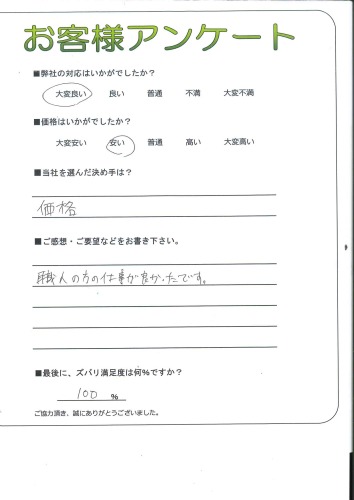 お客様アンケート
■弊社の対応はいかがでしたか？
大変良い 良い 普通 不満 大変不満
■価格はいかがでしたか？
大変安い 安い 普通 高い 大変高い
■当社を選んだ決め手は？
価格
■ご感想・ご要望などをお書き下さい。
職人の方の仕事が良かったです。
■最後に、ズバリ満足度は何%ですか？
100 %
ご協力頂き、誠にありがとうございました。